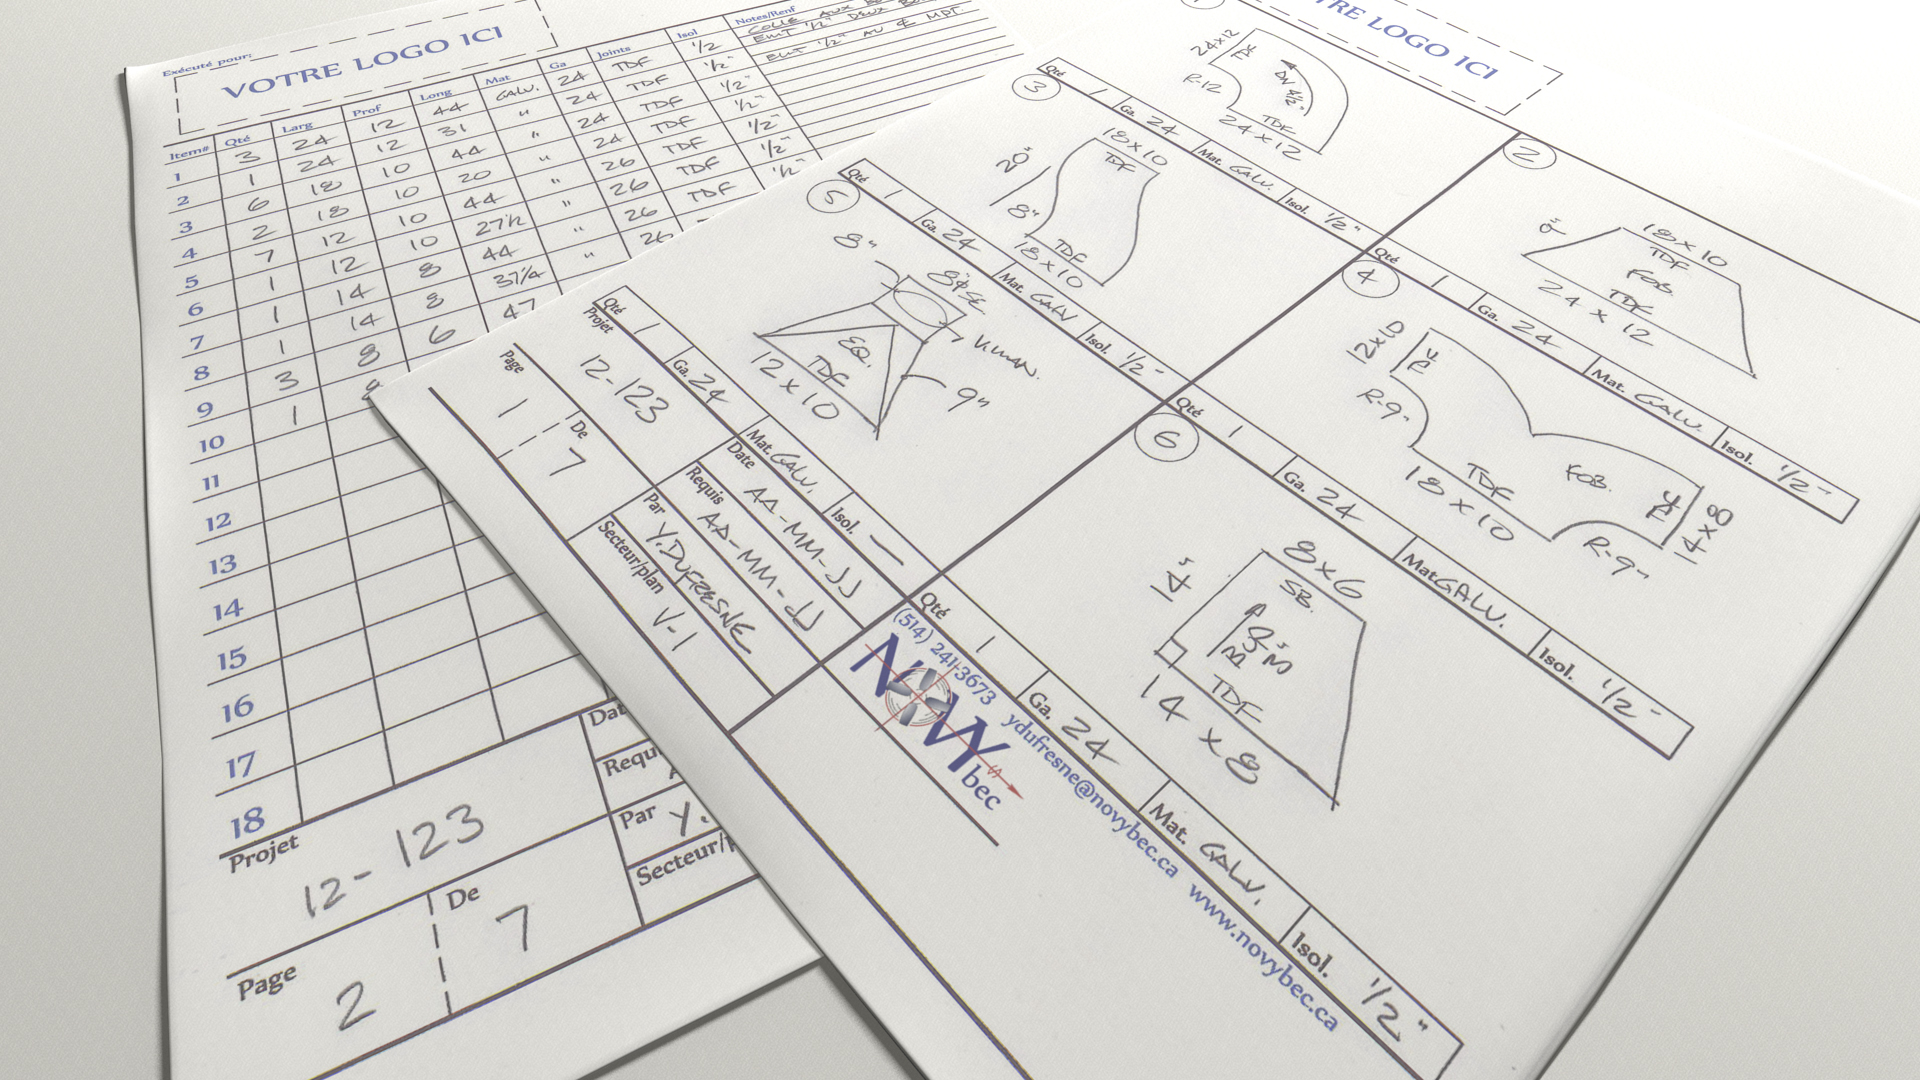 Exécuté pour:
VOTRE LOGO ICI
Item# Qté Larg Prof Long Mat Ga Joints Isol Notes/Renf
1 3 24 12 44 GALV. 24 TDF 1/2
2 1 24 12 31 " 24 TDF 1/2"
3 6 18 10 44 " 24 TDF 1/2"
4 2 18 10 20 " 24 TDF 1/2"
5 7 12 10 44 " 26 TDF 1/2"
6 1 12 10 27 1/2 " 26 TDF 1/2"
7 1 14 8 44 " 26 TDF 1/2"
8 1 14 8 37 1/4 " 26
9 3 8 6 47
10 1
11
12
13
14
15
16
17
18
COLLE AUX
EMT 1/2" DEUX
EMT 1/2" AU ℄ MPT
Projet
12-123
Page
2
De
7
Dat
Requ
Par Y.
Secteur/
VOTRE LOGO ICI
24x12
R-12
DN 4 1/2"
TDF
24x12
Qté 1 Ga. 24 Mat. GALV. Isol. 1/2"
2
9"
18x10
TDF
FOB.
TDF
24 x 12
Qté 1 Ga. 24 Mat. GALV. Isol. 1/2"
3
20"
8"
18x10
TDF
TDF
18x10
Qté 1 Ga. 24 Mat. GALV Isol. 1/2"
4
12x10
R-9"
TDF
18x10
FOB.
8x14
R-9"
Qté 1 Ga. 24 Mat. GALV. Isol. 1/2"
5
8"
8"ø SE
V.MAN.
EQ.
TDF
12x10
9"
Qté 1 Ga. 24 Mat. GALV. Isol. —
6
8x6
SB.
14"
TDF
14 x 8
Qté 1 Ga. 24 Mat. GALV. Isol. 1/2"
Projet
12-123
Page
1
De
7
Date
AA-MM-JJ
Requis
AA-MM-JJ
Par
Y.DUFRESNE
Secteur/plan
V-1
(514) 241-3673 ydufresne@novybec.ca www.novybec.ca
NOVYbec